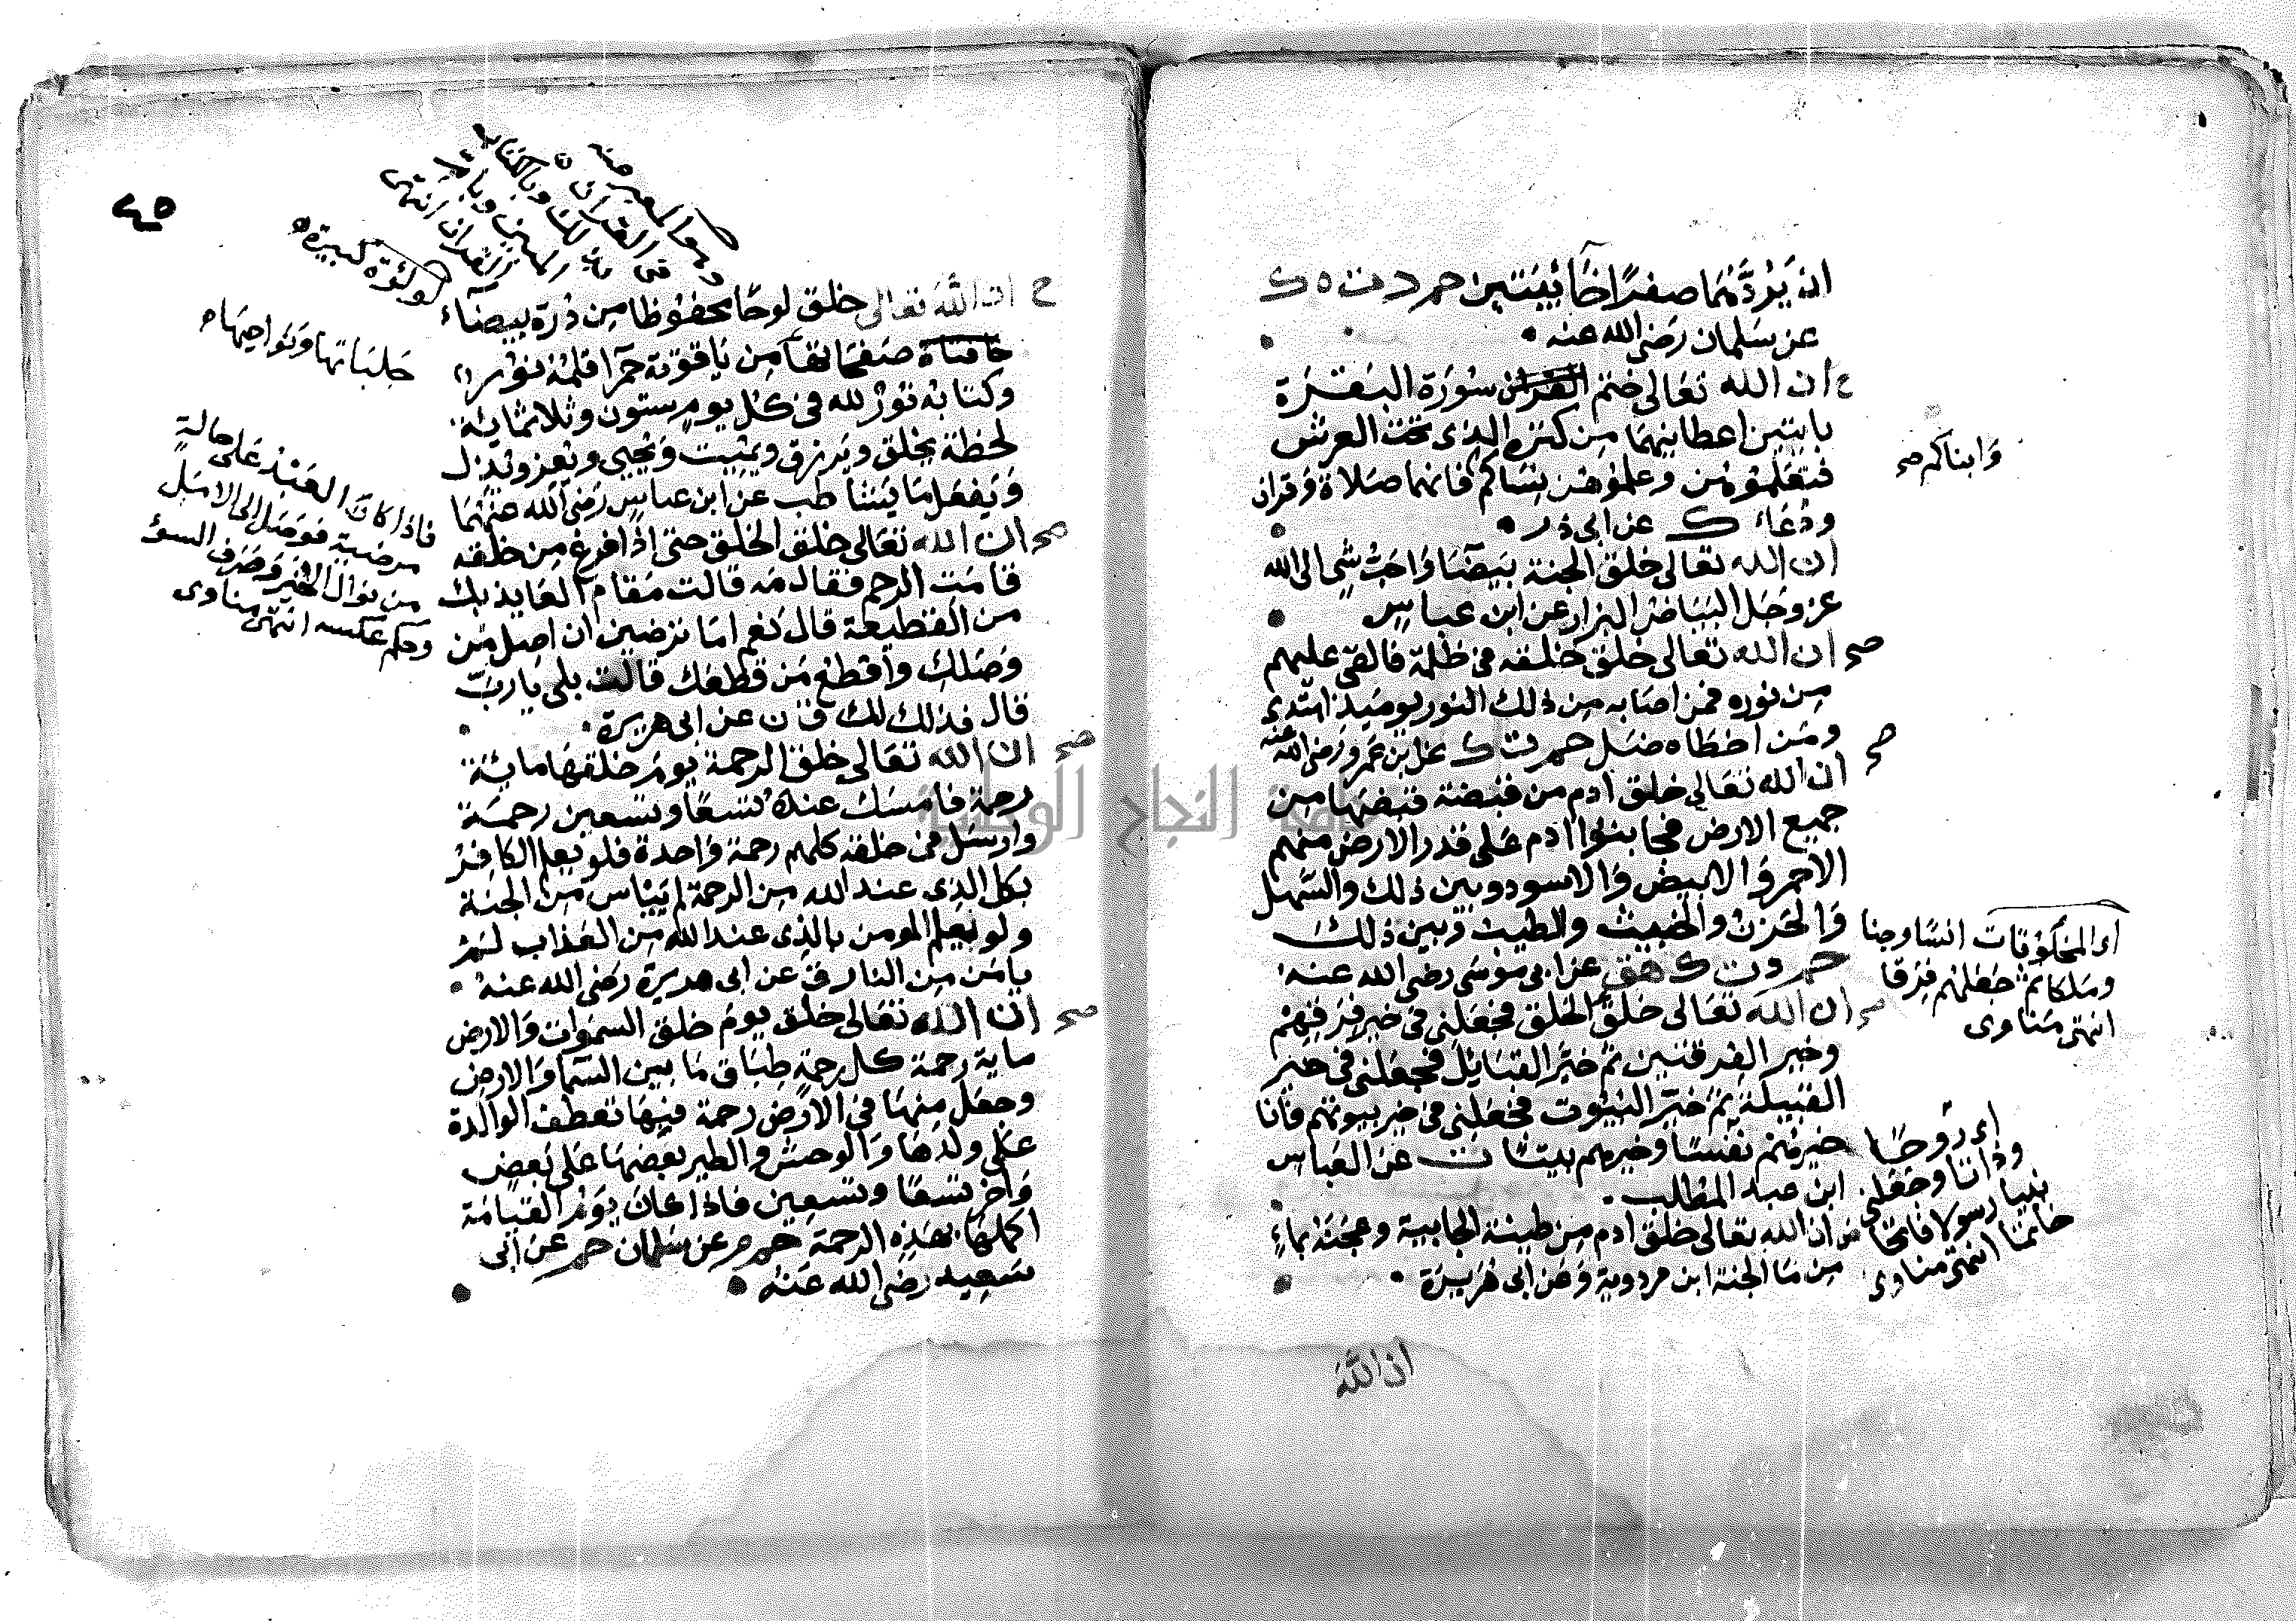 ان يردهما صفرا خائبتين حم د ت ه ك
عن سلمان رضي الله عنه
ح ان الله تعالى ختم سورة البقرة
بايتين اعطانيهما من كنزه الذي تحت العرش
فتعلموهن وعلموهن نساكم فانهما صلاة وقران
وابناكم صح
ودعاء ك عن ابي ذر
ان الله تعالى خلق الجنة بيضا واحب شي الى الله
عز وجل البياض البزار عن ابن عباس
صح ان الله تعالى خلق خلقه في ظلمة فالقى عليهم
من نوره فمن اصابه من ذلك النور يوميذ اهتدى
ومن اخطاه ضل حم ت ك عن ابن عمرو رضي الله عنه
صح ان الله تعالى خلق ادم من قبضة قبضها من
جميع الارض فجا بنوا ادم على قدر الارض منهم
الاحمر والابيض والاسود وبين ذلك والسهل
والحزن والخبيث والطيب وبين ذلك
حم د ت ك هق عن ابي موسى رضي الله عنه
صح ان الله تعالى خلق الخلق فجعلني في خير فرقهم
وخير الفرقتين ثم خير القبايل فجعلني في خير
القبيلة ثم خير البيوت فجعلني في خير بيوتهم فانا
خيرهم نفسا وخيرهم بيتا ت عن العباس
ابن عبد المطلب
ض ان الله تعالى خلق ادم من طينة الجابية وعجنه بماء
من ما الجنة ابن مردوية عن ابي هريرة
اي المخلوقات انسا وجنا
وملكا ثم جعلهم فرقا
انتهى مناوى
اي روحا
وذاتا وجعلني
نبيا رسولا فاتحا
خاتما انتهى مناوى
ان الله
٤٥
لولؤة كبيرة
ح ان الله تعالى خلق لوحا محفوظا من درة بيضاء
جنباتها ونواحيها
حافتاه صفحاتها من ياقوتة حمرا قلمه نور
وكتابه نور لله في كل يوم ستون وثلاثماية
لحظة يخلق ويرزق ويميت ويحيي ويعز ويذل
ويفعل ما يشا طب عن ابن عباس رضي الله عنهما
صح ان الله تعالى خلق الخلق حتى اذا فرغ من خلقه
قامت الرحم فقال مه قالت مقام العايذ بك
من القطيعة قال نعم اما ترضين ان اصل من
وصلك واقطع من قطعك قالت بلى يا رب
قال فذلك لك ق ن عن ابي هريرة
صح ان الله تعالى خلق الرحمة يوم خلقها ماية
رحمة فامسك عنده تسعا وتسعين رحمة
وارسل في خلقه كلهم رحمة واحدة فلو يعلم الكافر
بكل الذي عند الله من الرحمة لم يياس من الجنة
ولو يعلم المومن بالذي عند الله من العذاب لم
يامن من النار ق عن ابي هريرة رضي الله عنه
صح ان الله تعالى خلق يوم خلق السموات والارض
ماية رحمة كل رحمة طباق ما بين السما والارض
وجعل منها في الارض رحمة فبها تعطف الوالدة
على ولدها والوحش والطير بعضها على بعض
واخر تسعا وتسعين فاذا كان يوم القيامة
اكملها بهذه الرحمة حم م عن سلمان حم عن ابي
سعيد رضي الله عنه
فاذا كان العبد على حالة
مرضية
من نوال الخير وصرف السؤ
وحكم عكسه انتهى مناوى
النجاح الوطنية